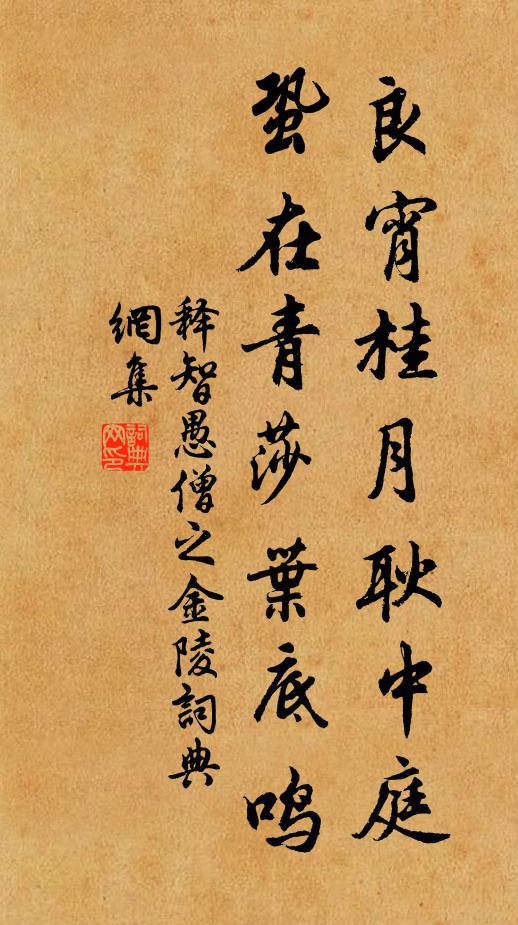 良宵桂月耿中庭
蛩在青莎葉底鳴
释智愚僧之金陵詞典
網集
詞典
网印